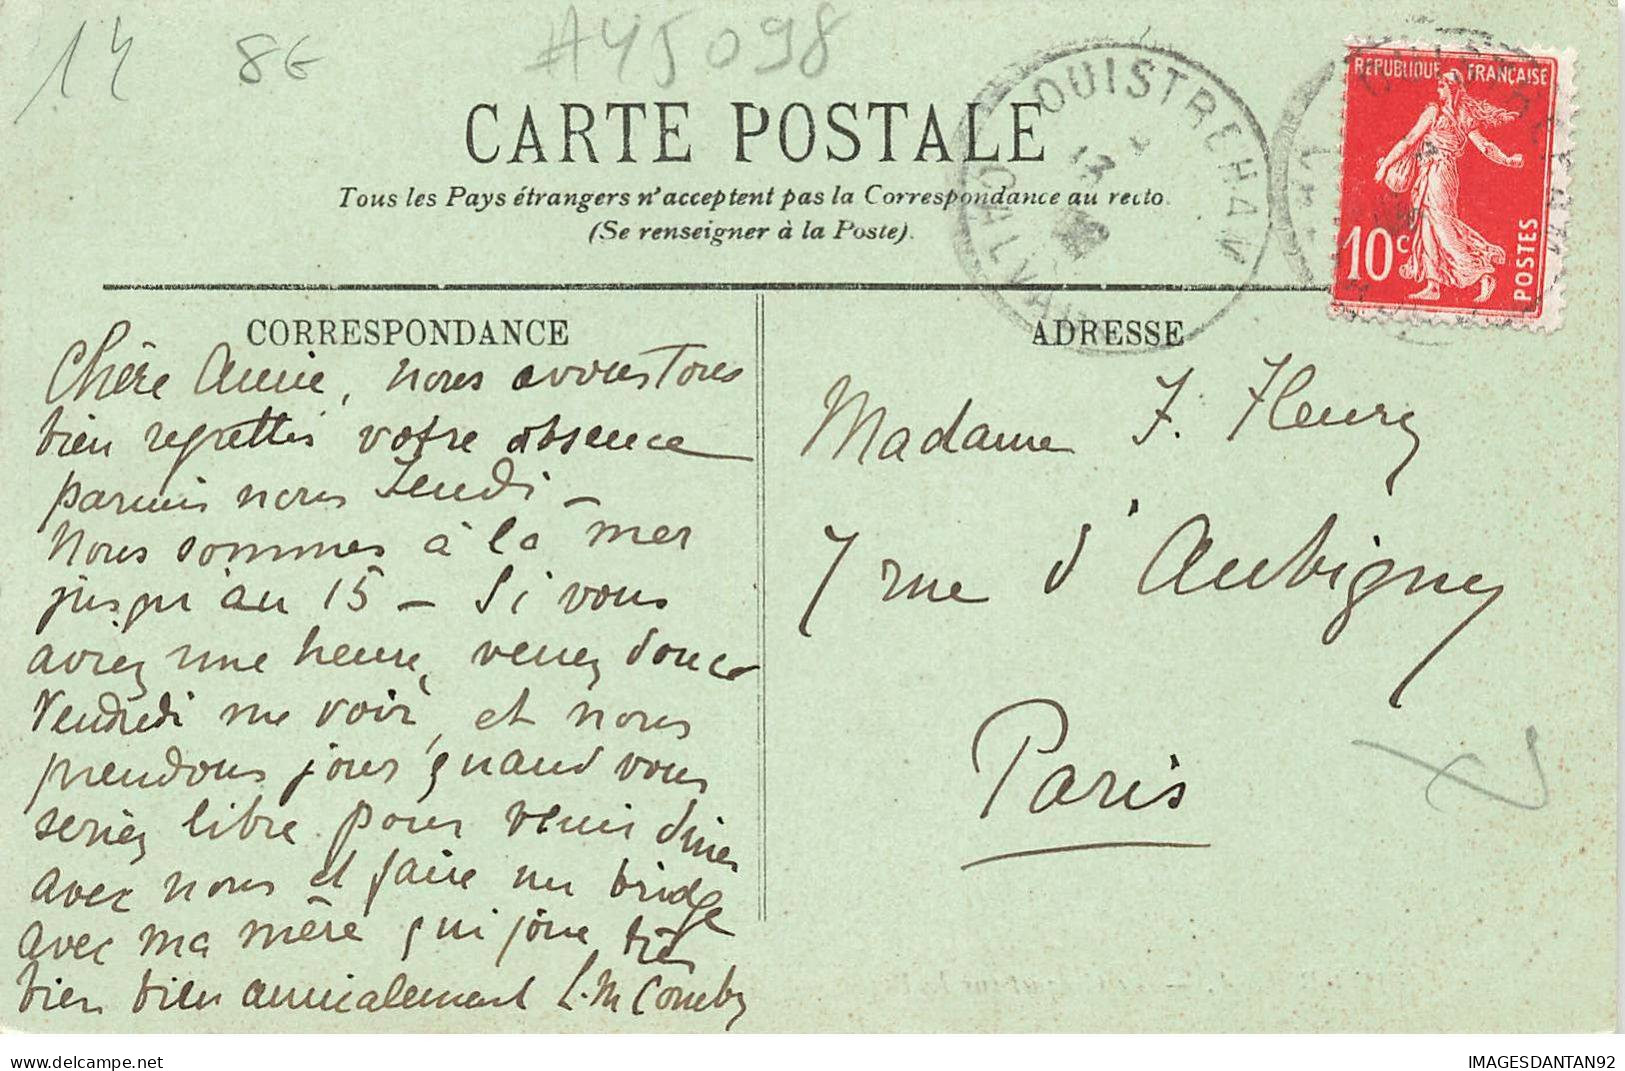 14
8€
#45098
CARTE POSTALE
Tous les Pays étrangers n'acceptent pas la Correspondance au recto.
(Se renseigner à la Poste).
OUISTREHAM
CALVADOS
REPUBLIQUE FRANÇAISE
10c
POSTES
CORRESPONDANCE
Chère Amie, nous avons tous
bien regrettés votre absence
parmis nous Jeudi –
Nous sommes à la mer
jusqu'au 15 – Si vous
aviez une heure, venez donc
Vendredi me voir, et nous
prendons jour quand vous
seriez libre pour venir diner
avec nous et faire un bridge
avec ma mère qui joue très
bien bien amicalement L. M Comby
ADRESSE
Madame J. Fleury
7 rue d'Aubigny
Paris
www.delcampe.net
IMAGESDANTAN92